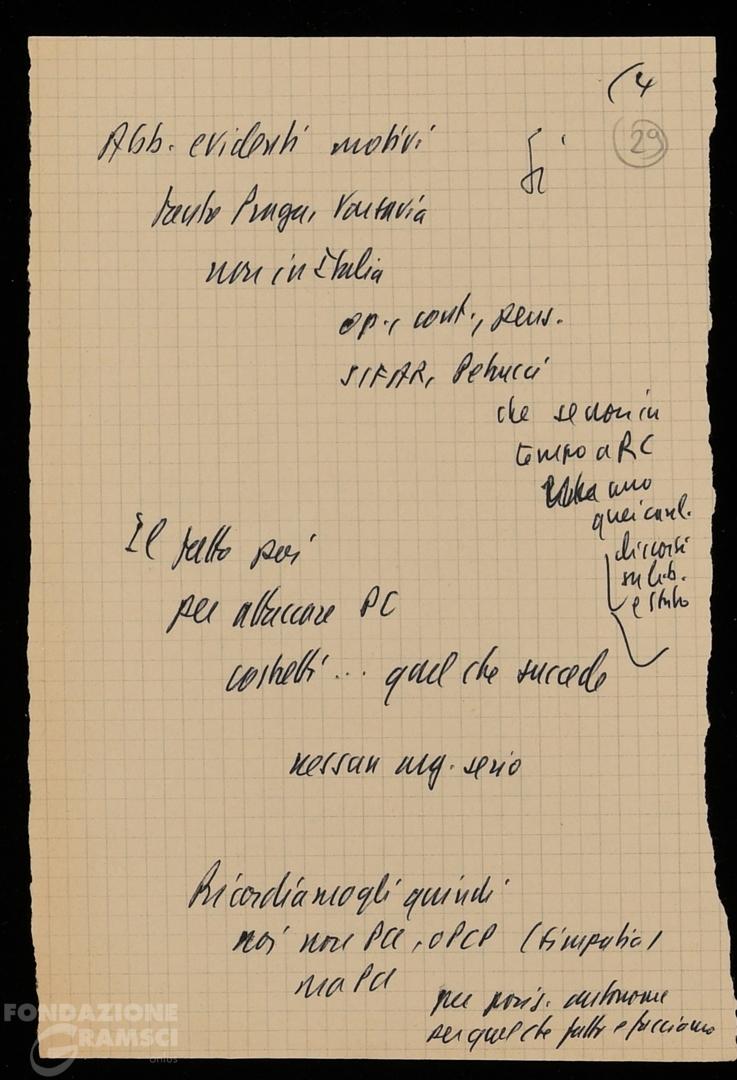 (4
29
Abb. evidenti motivi
Sì
tanto Praga, Varsavia
non in Italia
op., cont., pens.
SIFAR, Petrucci
che se non in
tempo a RC
ano
quei conl.
discorsi
su lib.
e Stato
Il fatto poi
per attaccare PC
costretti ... quel che succede
nessun arg. serio
Ricordiamogli quindi
noi non PCC, o PCP (simpatia)
ma PCI
per posiz. autonome
per quel che fatto e facciamo
FONDAZIONE
GRAMSCI
onlus